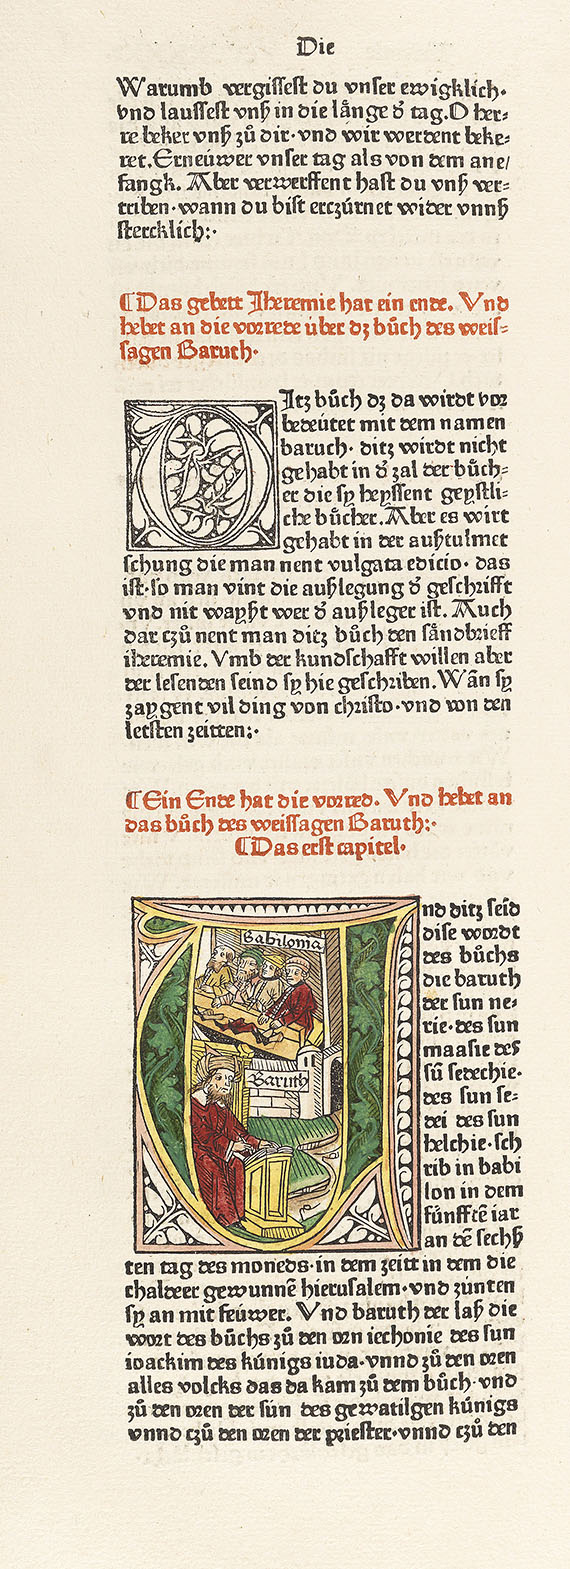 Die
Warumb vergissest du vnser ewigklich.
vnd laussest vnß in die långe d̕ tag. O her⸗
re beker vnß zů dir·vnd wir werdent beke⸗
ret. Erneúwer vnser tag als von dem ane/
fangk. Aber verwerffent hast du vnß ver⸗
triben·wann du bist erczúrnet wider vnnß
stercklich:·
⸿Das gebett Jheremie hat ein ende. Vnd
hebet an die vorrede úber dz bůch des weis⸗
sagen Baruch·
DItz bůch dz da wirdt vor
bedeútet mit dem namen
baruch· ditz wirdt nicht
gehabt in d̕ zal der bůch⸗
er die sy heyssent geystli⸗
che bůcher. Aber es wirt
gehabt in der außtulmet
schung die man nent vulgata edicio· das
ist·so man vint die außlegung d̕ geschrifft
vnd nit wayßt wer d̕ außleger ist. Auch
dar czů nent man ditz bůch den såndbrieff
iheremie. Vmb der kundschafft willen aber
der lesenden seind sy hie geschriben. Wañ sy
zaygent vil ding von christo·vnd von den
letsten zeitten:·
⸿Ein Ende hat die vorred. Vnd hebet an
das bůch des weissagen Baruch:·
⸿Das erst capitel·
Babilonia
Baruch
Vnd ditz seid
dise wordt
des bůchs
die baruch
der sun ne⸗
rie·des sun
maasie des
sů sedechie·
des sun se⸗
dei des sun
helchie·sch
rib in babi
lon in dem
fúnfftē iar
an dē sechß
ten tag des moneds·in dem zeitt in dem die
chaldeer gewunnē hierusalem·vnd zúnten
sy an mit feúwer. Vnd baruch der laß die
wort des bůchs zů den orn iechonie des sun
ioackim des kúnigs iuda·vnnd zů den oren
alles volcks das da kam zů dem bůch·vnd
zů den oren der sún des gewatilgen kúnigs
vnnd czů den oren der priester·vnnd czů den